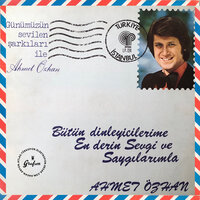 Günümüzün
sevilen
şarkıları
ile
Ahmet Özhan
TÜRKİYE
İSTANBUL
Bütün dinleyicilerime
En derin Sevgi ve
Saygılarımla
AHMET ÖZHAN
Grafson